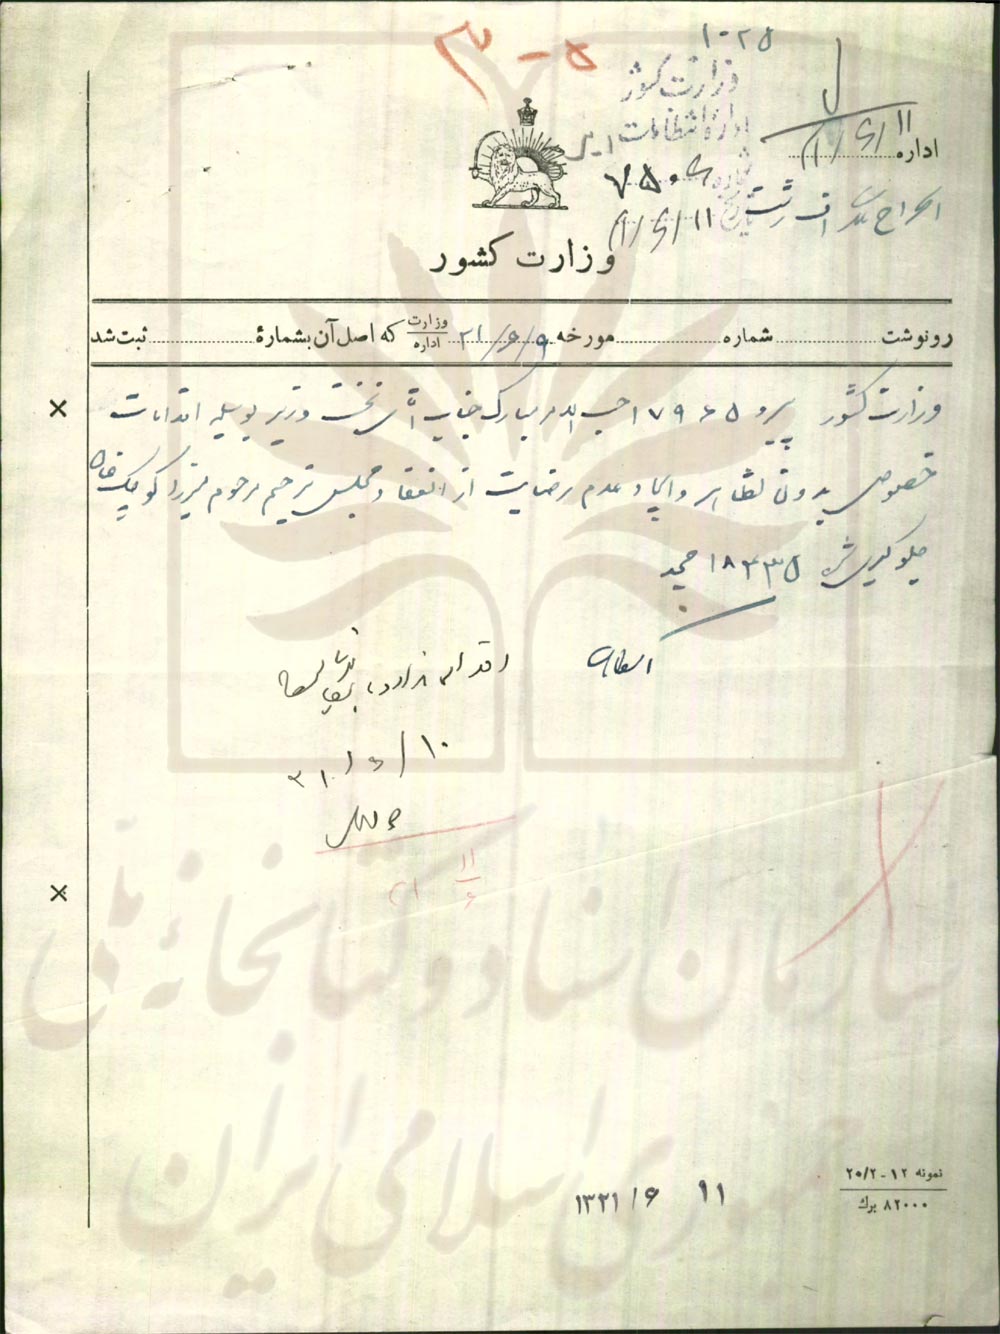 ۵ - ۳
۱۰۲۵
وزارت کشور
اداره انتظامات
شماره ۷۵۰۶
تاریخ ۱۱/۶/۲۱
اداره ۱۱/۶/۲۱
وزارت کشور
رونوشت شماره مورخه ۲۱/۶/۹ وزارت اداره که اصل آن بشمارهٔ ثبت شد
وزارت کشور پیرو ۱۷۹۶۵ حسب الامر مبارک جناب آقای نخست وزیر بوسیله اقدامات
خصوصی بدون تظاهر و ایجاد عدم رضایت از انعقاد مجلس ترحیم مرحوم میرزا کوچک خان
جلوگیری شده ۱۸۴۳۵ مجید
اقدامی ندارد، بایگانی شود
۱۰/۶/۲۱
۱۱/۶ ۲۱
۱۱ ۶/ ۱۳۲۱
نمونه ۱۲ - ۲۰/۲
۸۲۰۰۰ برگ
سازمان اسناد و کتابخانهٔ ملی
جمهوری اسلامی ایران